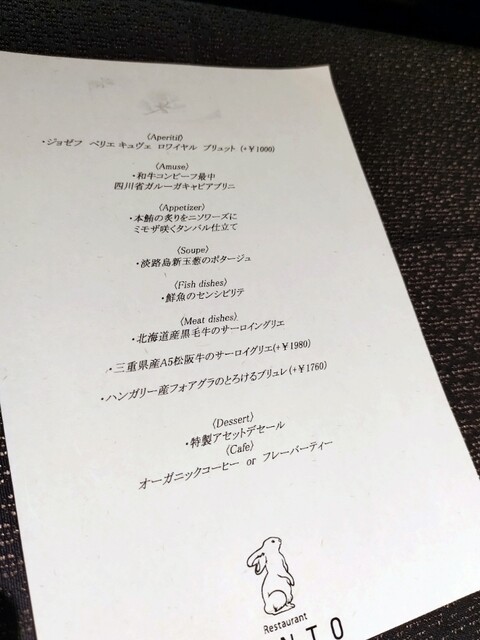 〈Aperitif〉
・ジョゼフ ペリエ キュヴェ ロワイヤル ブリュット (+¥1000)
〈Amuse〉
・和牛コンビーフ最中
四川省ガルーガキャビアブリニ
〈Appetizer〉
・本鮪の炙りをニソワーズに
ミモザ咲くタンバル仕立て
〈Soupe〉
・淡路島新玉葱のポタージュ
〈Fish dishes〉
・鮮魚のセンシビリテ
〈Meat dishes〉
・北海道産黒毛牛のサーロイングリエ
・三重県産A5松阪牛のサーロイグリエ(+¥1980)
・ハンガリー産フォアグラのとろけるブリュレ(+¥1760)
〈Dessert〉
・特製アセットデセール
〈Cafe〉
オーガニックコーヒー or フレーバーティー
Restaurant